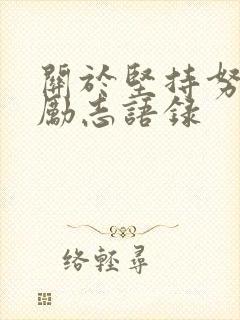 關於堅持努
勵志語錄
絡輕尋